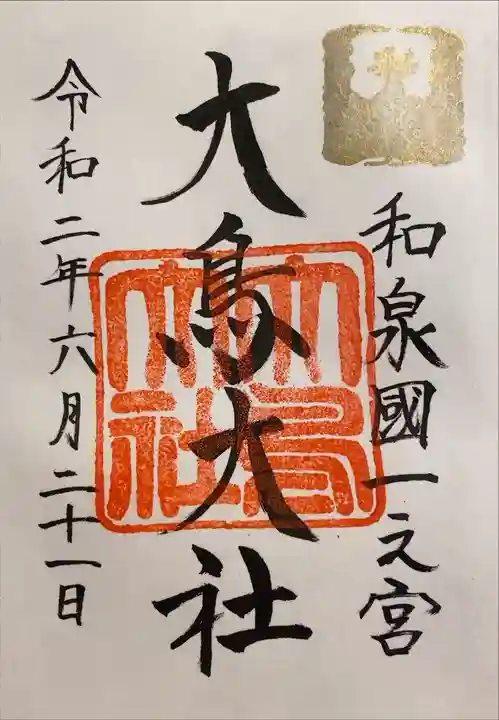 和泉國一之宮
大鳥大社
大鳥大社
令和二年六月二十一日